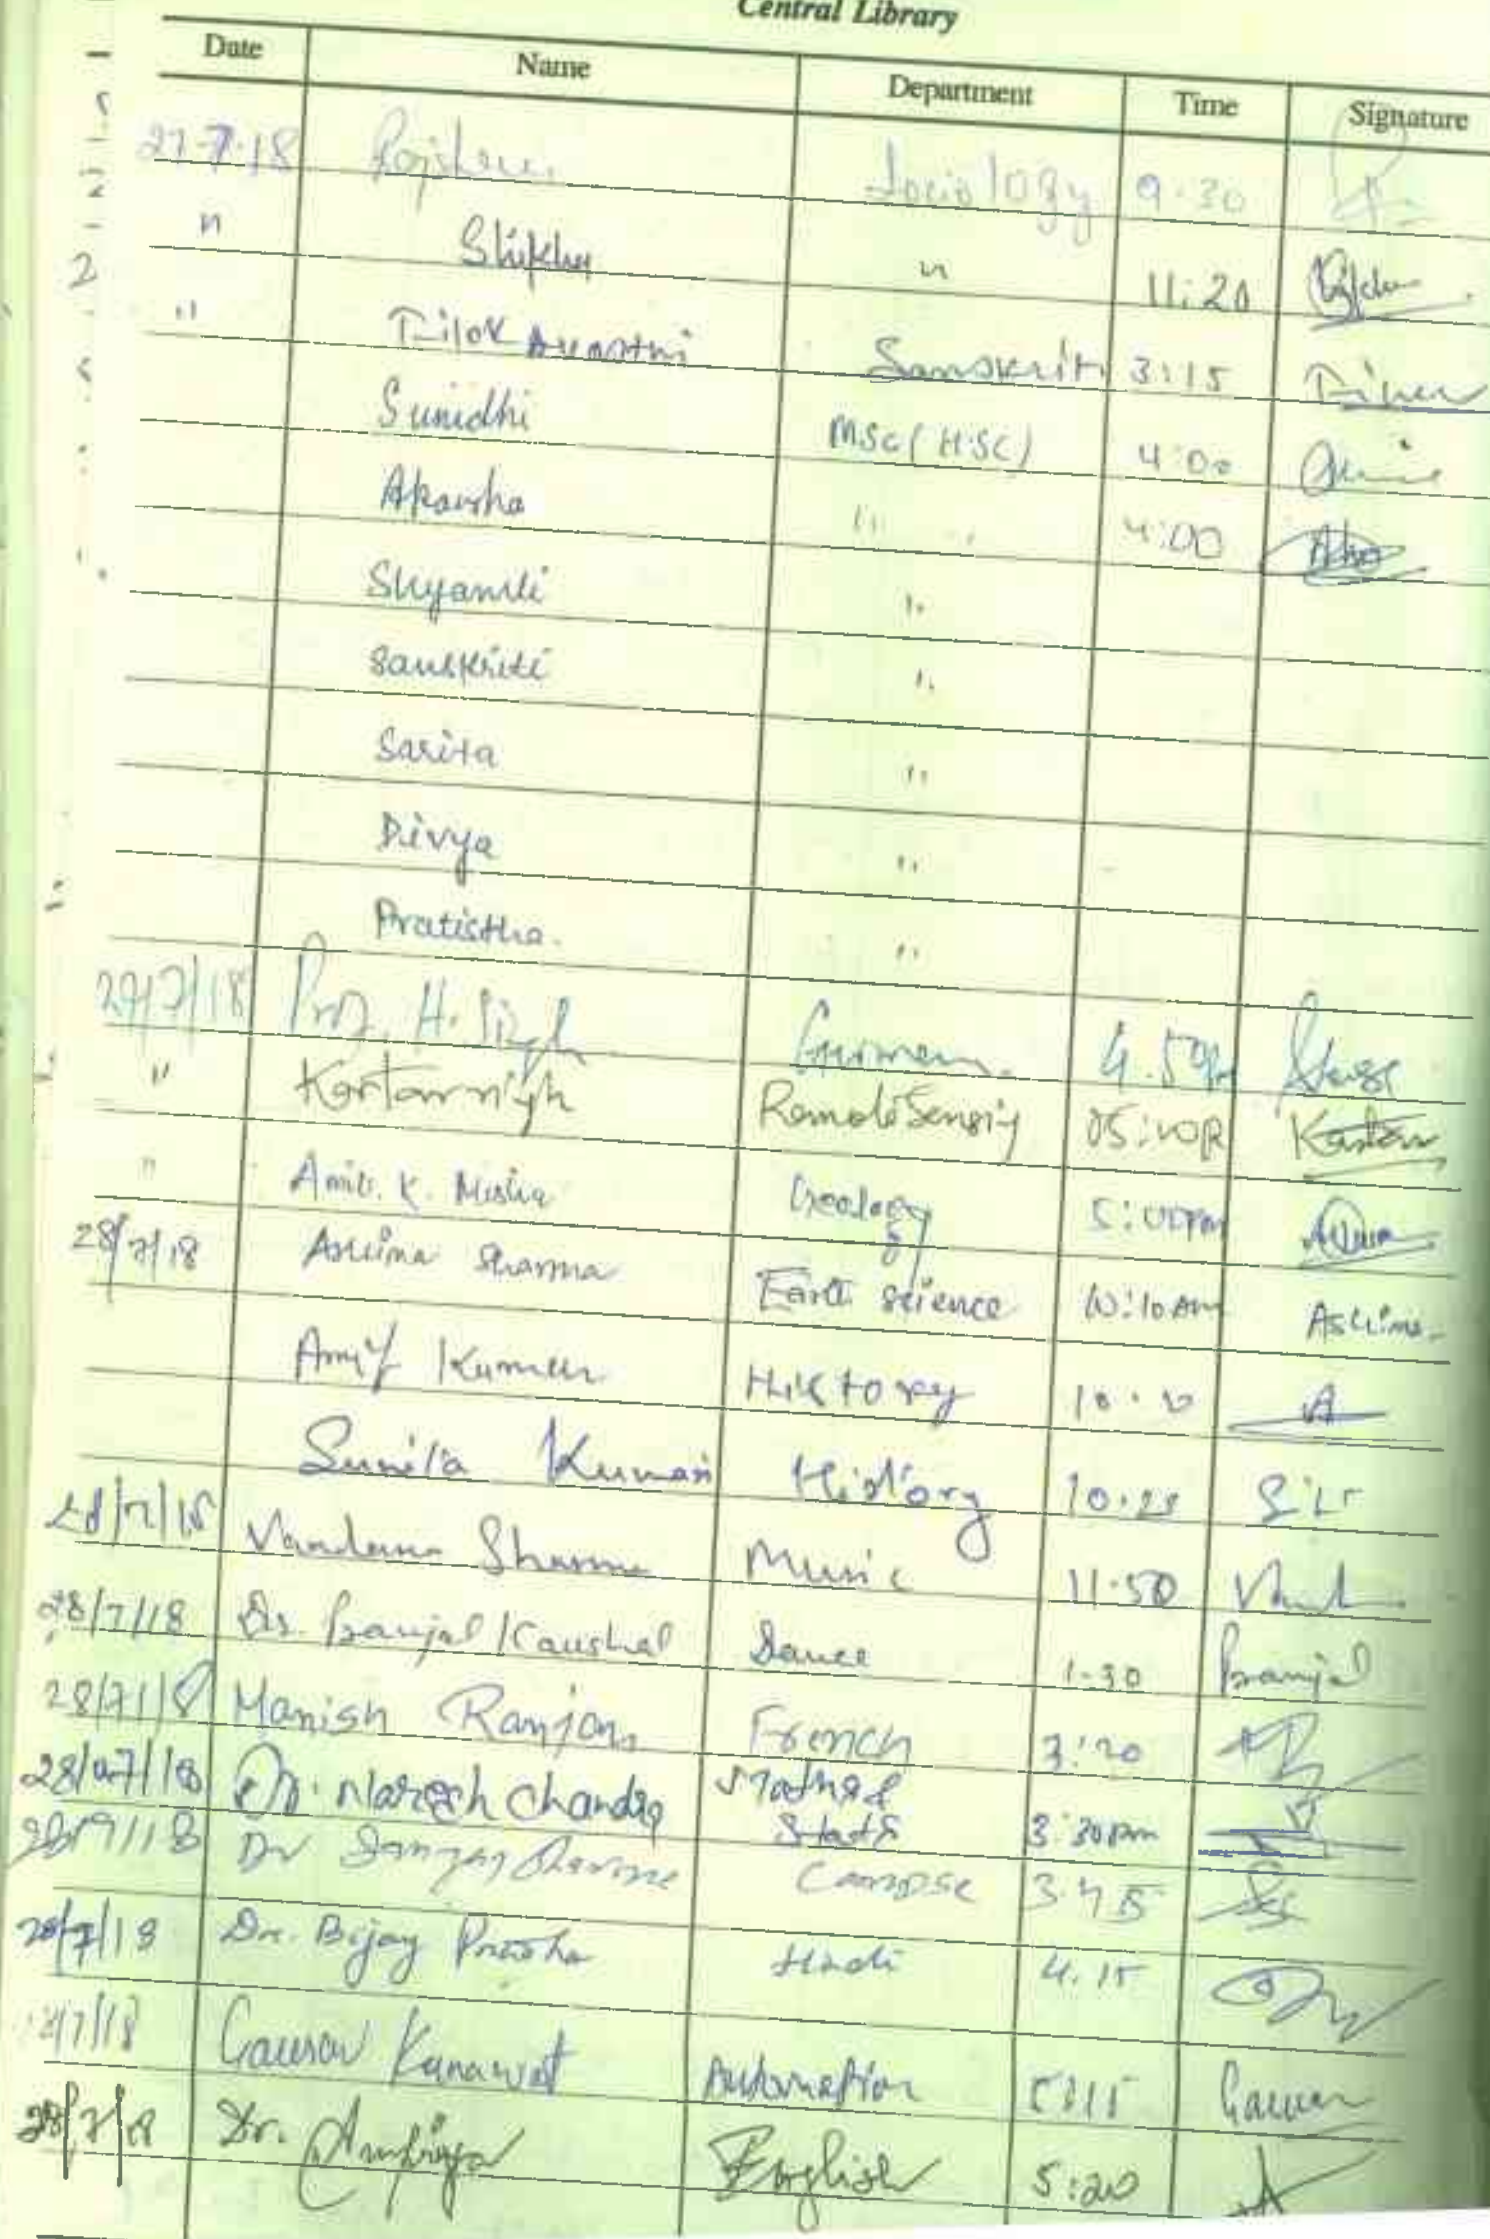 Central Library
Date Name Department Time Signature
27-7-18 Sociology 9-30
" Shikha " 11:20
" Trilok Awasthi Sanskrit 3:15
Sunidhi MSc (H.Sc) 4:00
Akarsha " 4:00
Shyamli "
Sanskriti "
Sarita "
Divya "
Pratistha. "
27/7/18 Prof. H. Singh
" Kartar
" Amit. K. Mishra Geology 5:00PM
28/7/18 Ashima Sharma Earth science 10:10 AM Ashima
Amit Kumar History
Sunita Kumari History 10.25
28/7/18 Vandana Sharma Music 11.50
28/7/18 Dr. Pranjal Kaushal Dance 1-30 Pranjal
28/7/18 Manish Ranjan French 3:20
28/07/18 Dr. Naresh Chandra Maths & Stats 3:30pm
Dr Sanjay Sharma 3.45
28/7/18 Dr. Bijay Hindi 4.15
Gaurav Kanawat Automation 5:15 Gaurav
28/7/18 Dr. English 5:20